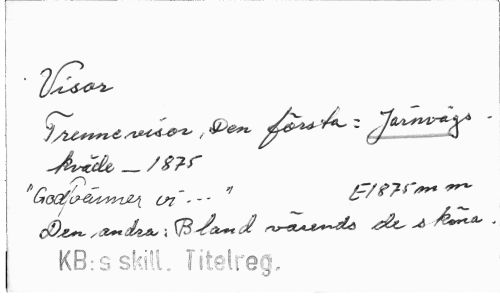 Visor
Trenne visor, Den första: Järnvägs-
kväde — 1875
"Godvänner vi..." E1875 m m
Den andra: Bland värends de sköna.
KB:s skill. Titelreg.